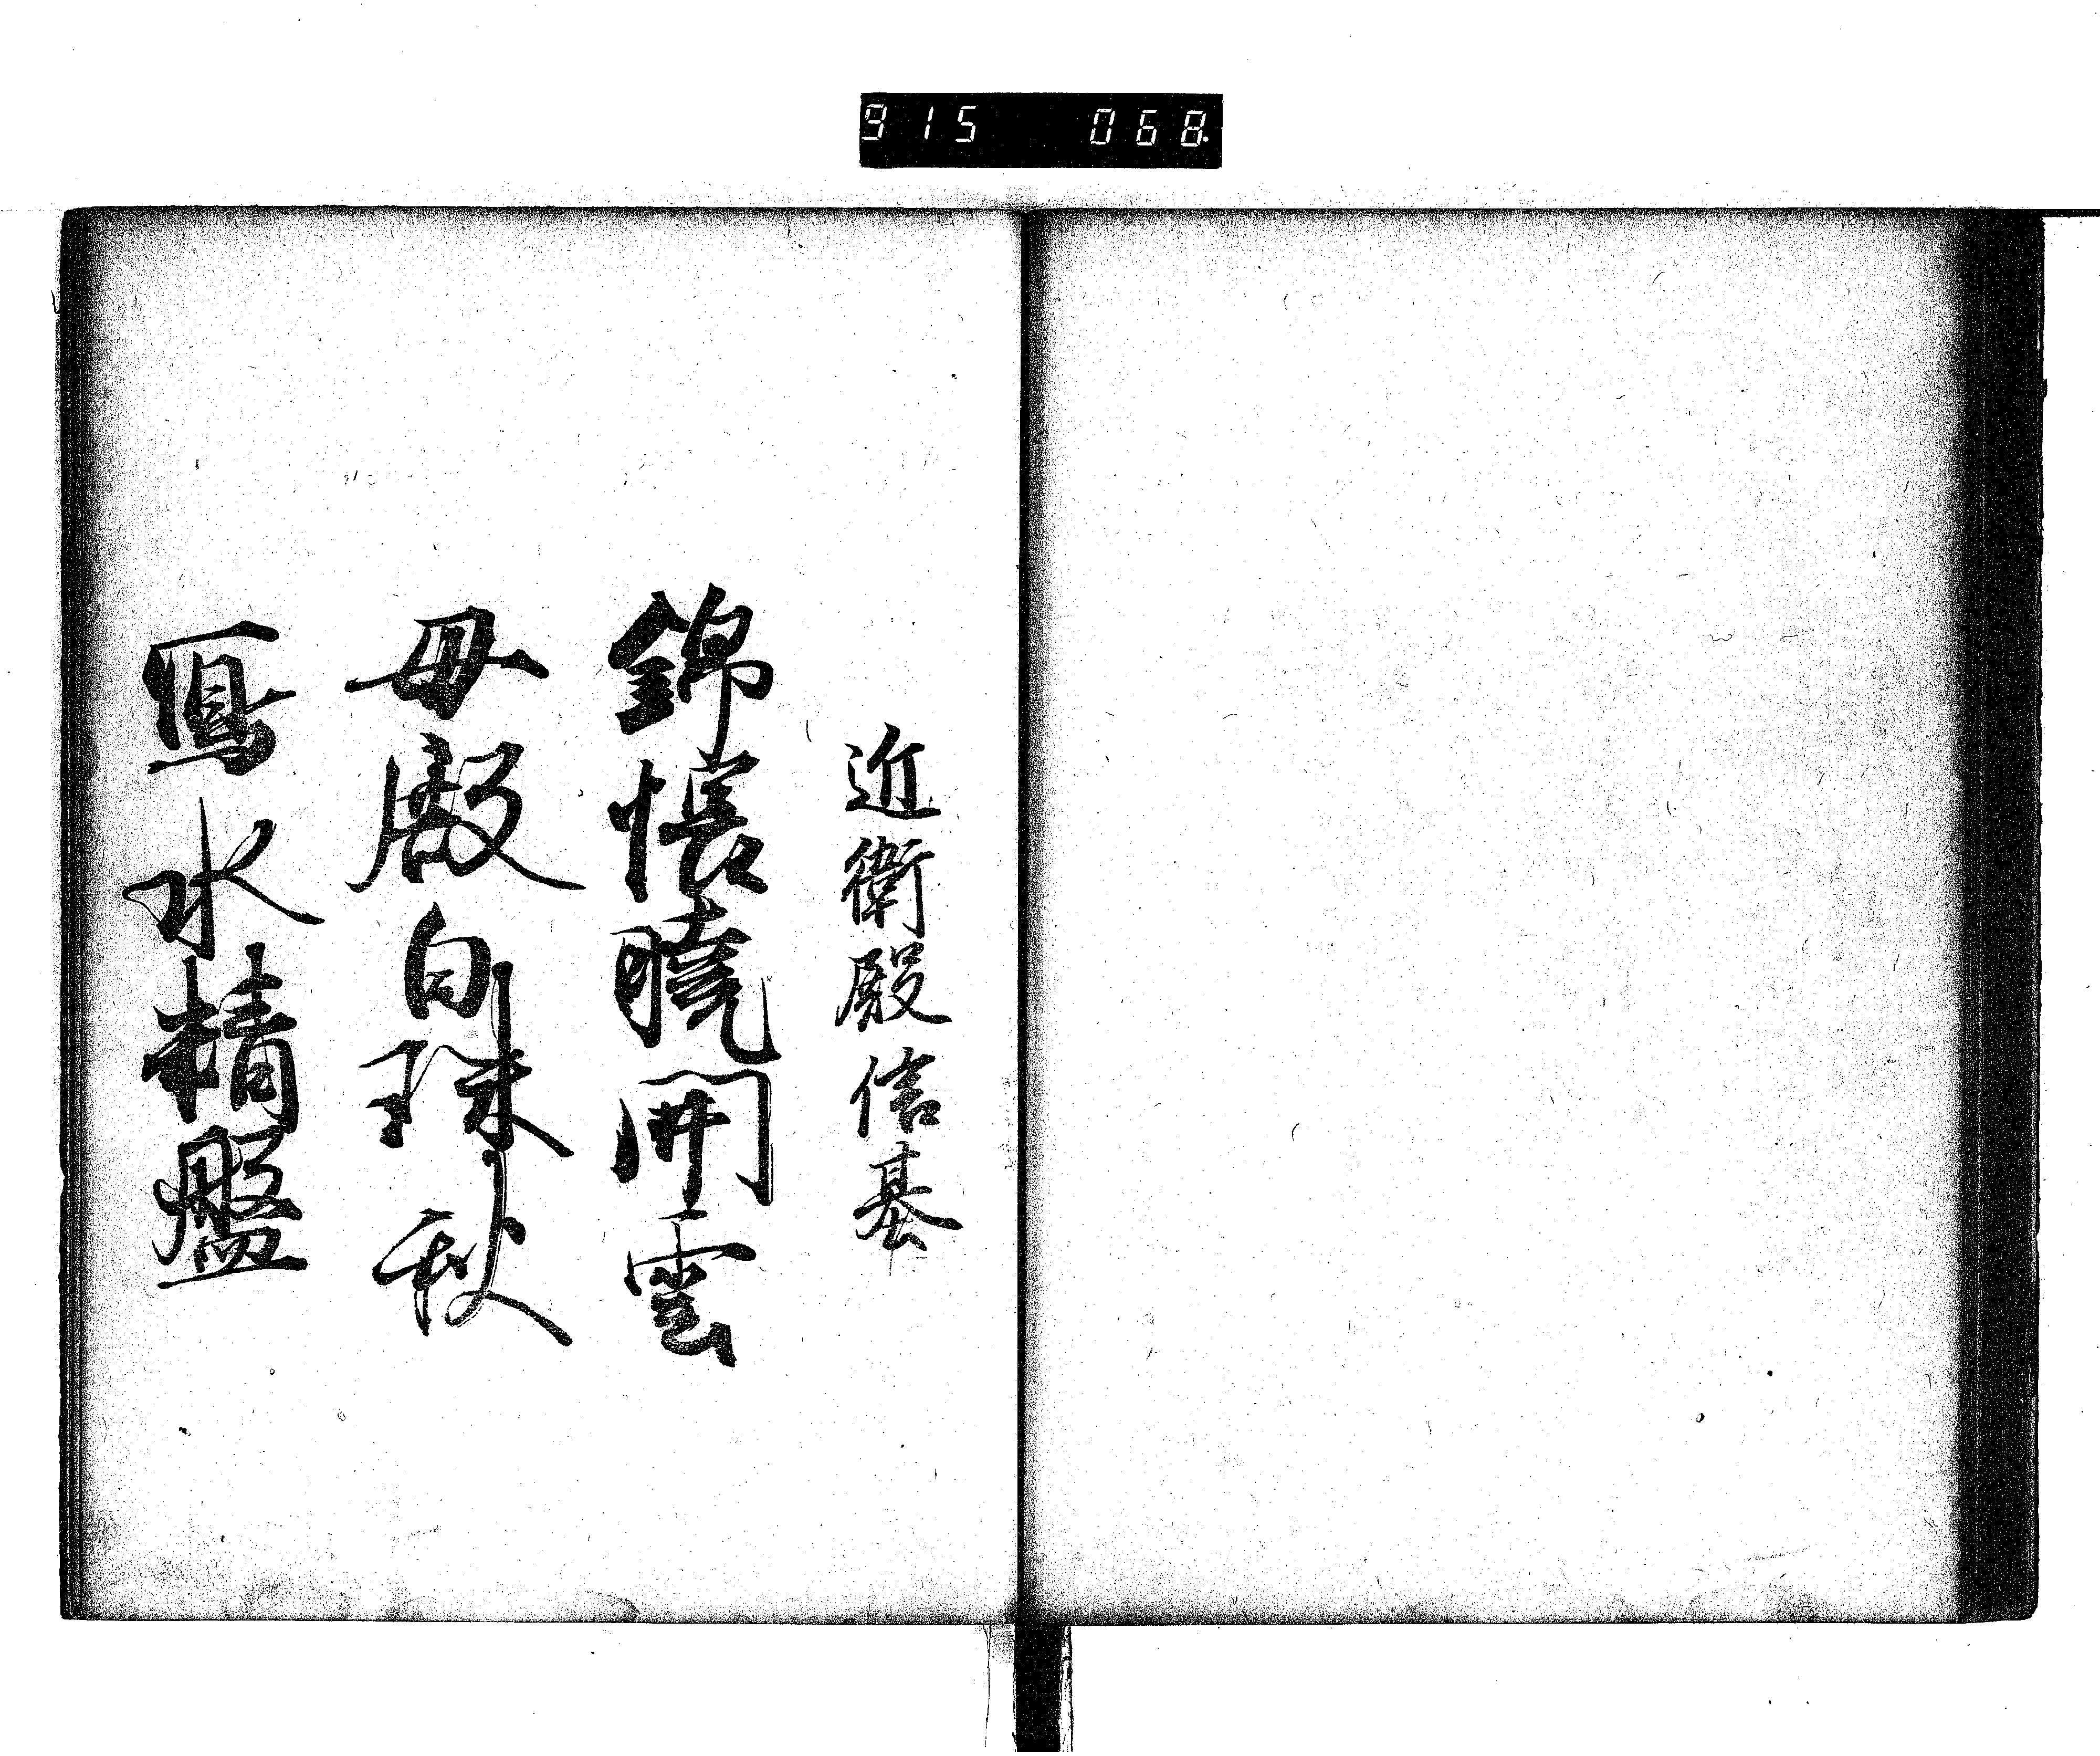 915 068
近衛殿信基
錦帳曉開雲
母殿白珠秋
寫水精盤